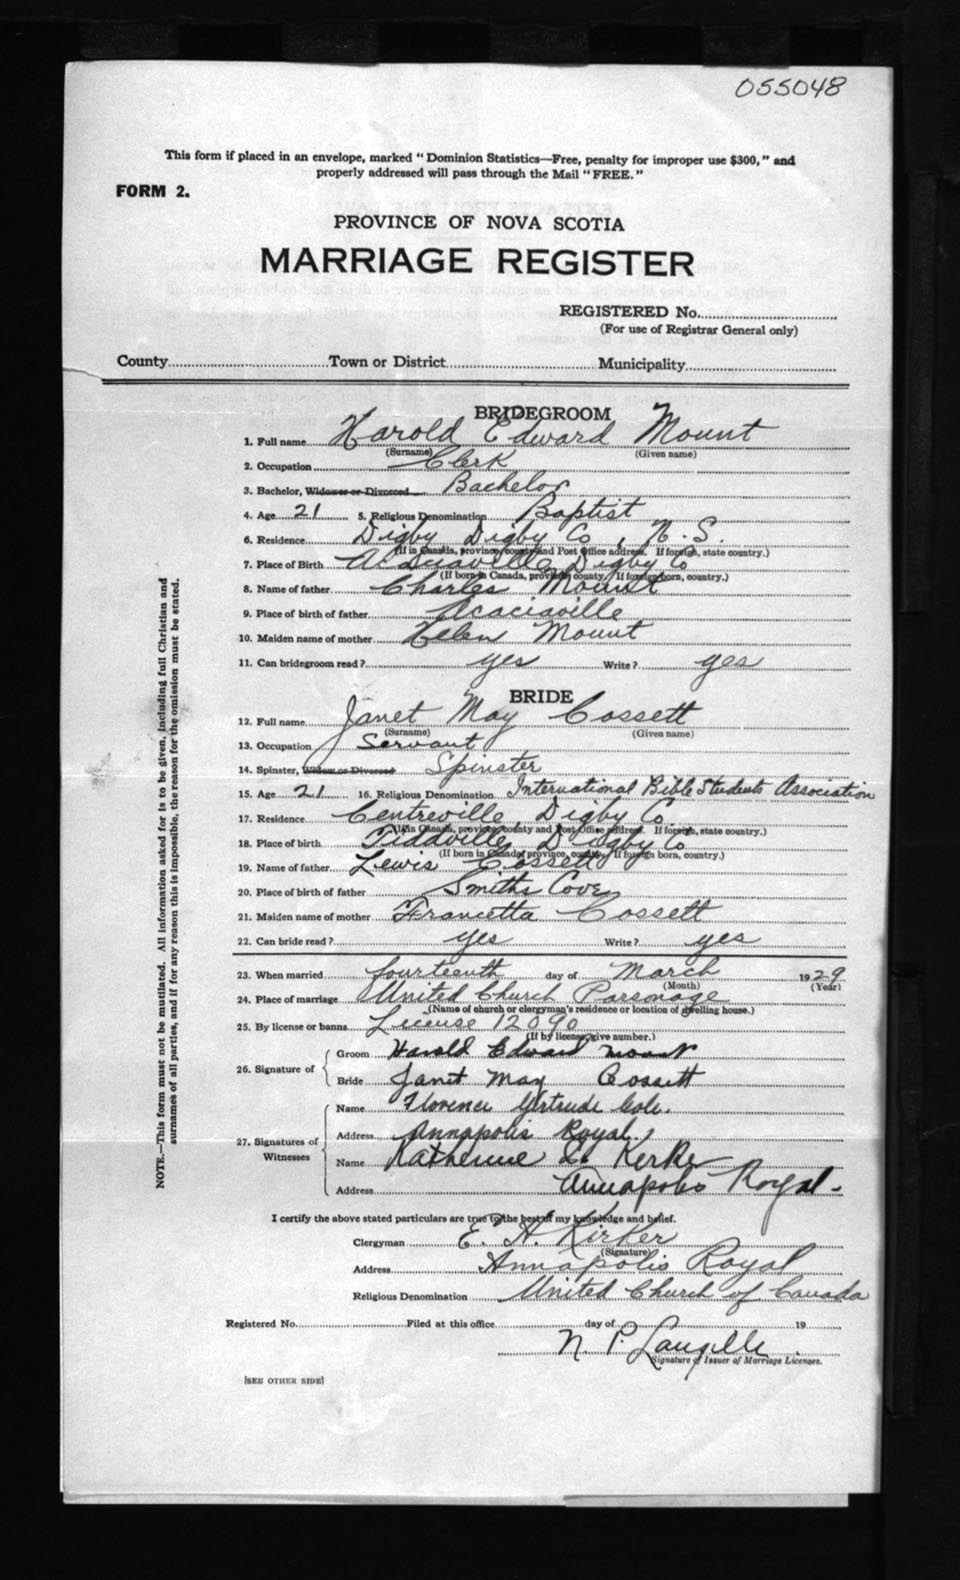 055048
This form if placed in an envelope, marked "Dominion Statistics—Free, penalty for improper use $300," and
properly addressed will pass through the Mail "FREE."
FORM 2.
PROVINCE OF NOVA SCOTIA
MARRIAGE REGISTER
REGISTERED No.
(For use of Registrar General only)
County Town or District Municipality
BRIDEGROOM
1. Full name Harold Edward Mount
(Surname) (Given name)
2. Occupation Clerk
3. Bachelor, Widower or Divorced Bachelor
4. Age 21 5. Religious Denomination Baptist
6. Residence Digby Digby Co, N.S.
(If in Canada, province, county and Post Office address. If foreign, state country.)
7. Place of Birth Acaciaville Digby Co
(If born in Canada, province, county. If foreign born, country.)
8. Name of father Charles Mount
9. Place of birth of father Acaciaville
10. Maiden name of mother Helen Mount
11. Can bridegroom read? yes Write? yes
BRIDE
12. Full name Janet May Cossett
(Surname) (Given name)
13. Occupation Servant
14. Spinster, Widow or Divorced Spinster
15. Age 21 16. Religious Denomination International Bible Students Association
17. Residence Centreville Digby Co.
(If in Canada, province, county and Post Office address. If foreign, state country.)
18. Place of birth Digby Co
(If born in Canada, province, county. If foreign born, country.)
19. Name of father Lewis Cossett
20. Place of birth of father Smiths Cove
21. Maiden name of mother Francetta Cossett
22. Can bride read? yes Write? yes
23. When married fourteenth day of March 1929
(Month) (Year)
24. Place of marriage United Church Parsonage
(Name of church or clergyman's residence or location of dwelling house.)
25. By license or banns License 12090
(If by license, give number.)
26. Signature of
Groom Harold Edward Mount
Bride Janet May Cossett
27. Signatures of Witnesses
Name Florence Gertrude Cole.
Address Annapolis Royal.
Name Katherine Kerke
Address Annapolis Royal.
I certify the above stated particulars are true to the best of my knowledge and belief.
Clergyman E. H. Kirker
(Signature)
Address Annapolis Royal
Religious Denomination United Church of Canada
Registered No. Filed at this office day of 19
N. P. Langille
Signature of Issuer of Marriage Licenses.
[SEE OTHER SIDE]
NOTE.—This form must not be mutilated. All information asked for is to be given, including full Christian and
surnames of all parties, and if for any reason this is impossible, the reason for the omission must be stated.